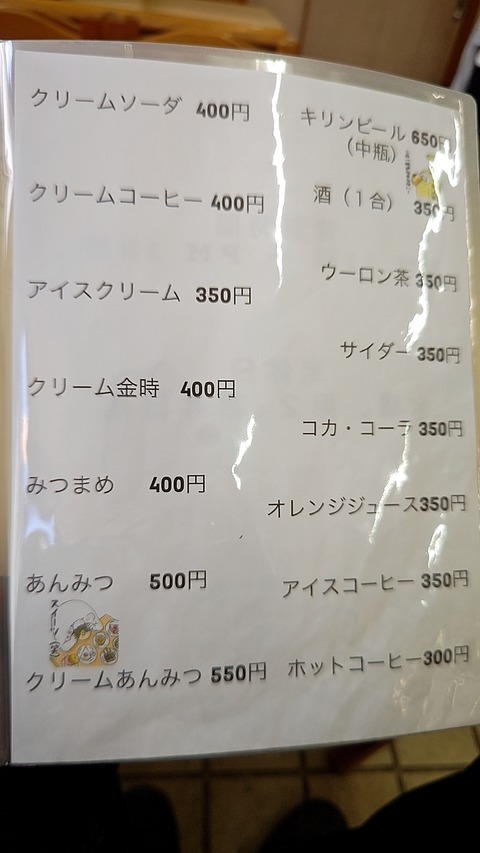 クリームソーダ 400円
クリームコーヒー 400円
アイスクリーム 350円
クリーム金時 400円
みつまめ 400円
あんみつ 500円
クリームあんみつ 550円
キリンビール 650円
（中瓶）
酒（１合） 350円
ウーロン茶 350円
サイダー 350円
コカ・コーラ 350円
オレンジジュース350円
アイスコーヒー 350円
ホットコーヒー300円